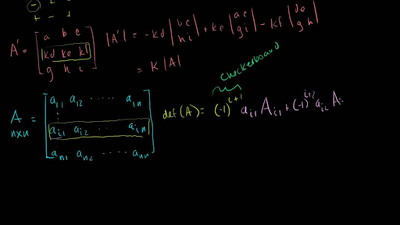 + - +
A' = [a b c
kd ke kf
g h i]
|A'| = -kd |b c
h i| + ke |a c
g i| - kf |d e
g h|
= K |A|
checkerboard
A
n×n
= [a11 a12 ..... a1n
⋮
ai1 ai2 ..... ain
an1 an2 ..... ann]
det(A) = (-1)^{i+1} ai1 Ai1 + (-1)^{i+2} ai2 A